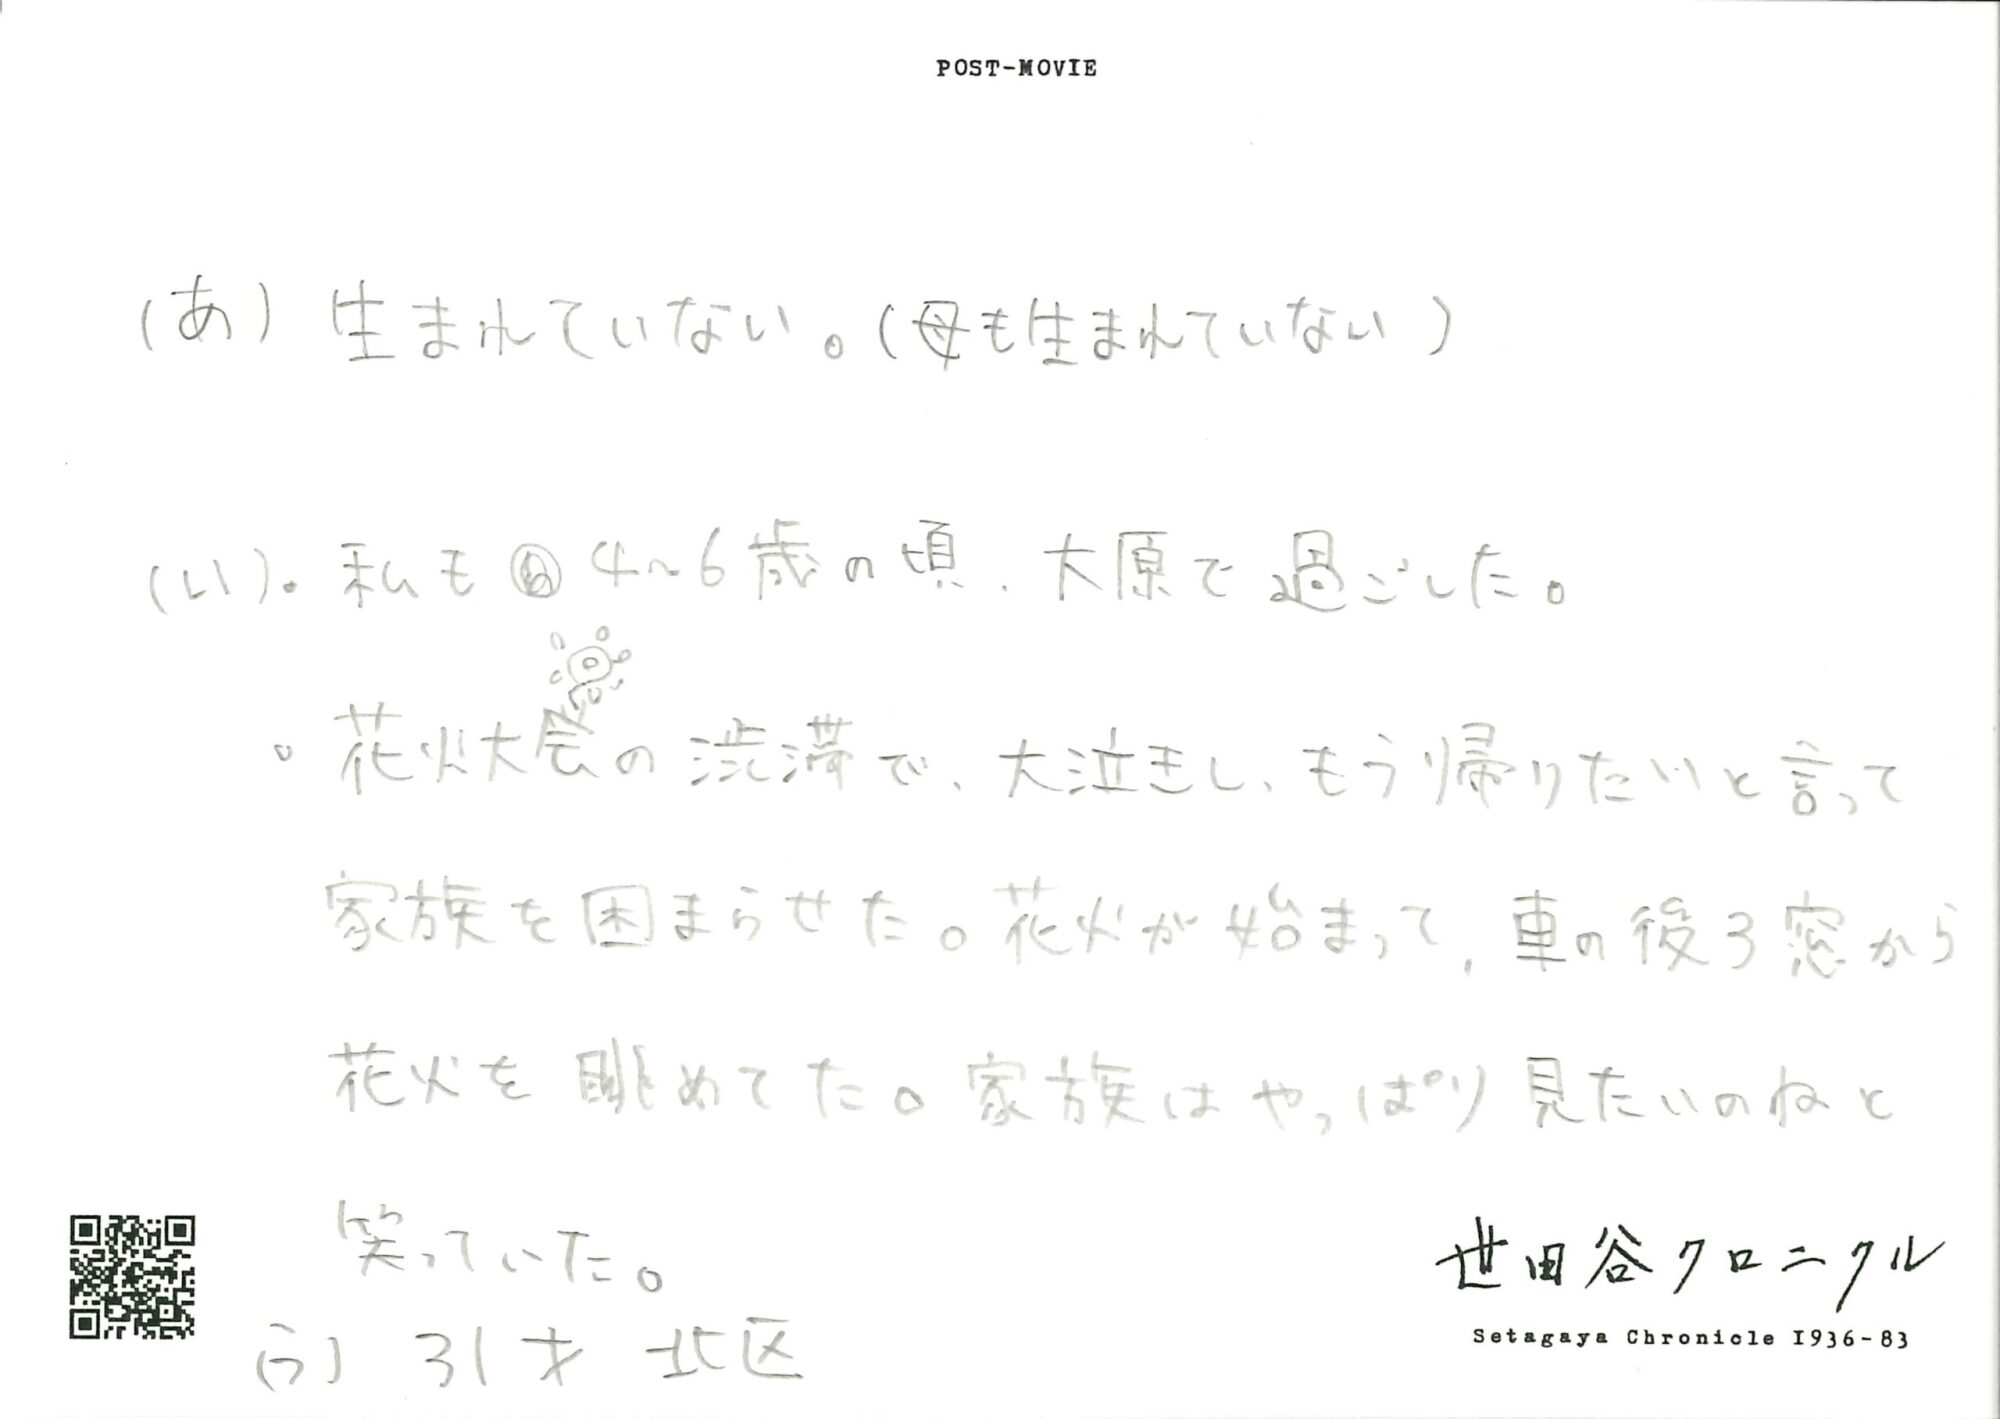 POST-MOVIE
(あ) 生まれていない。(母も生まれていない)
(い)・私も 4~6歳の頃、大原で過ごした。
・花火大会の渋滞で、大泣きし、もう帰りたいと言って
家族を困まらせた。花火が始まって、車の後ろ窓から
花火を眺めてた。家族はやっぱり見たいのねと
笑っていた。
(う) 31才 北区
世田谷クロニクル
Setagaya Chronicle 1936-83